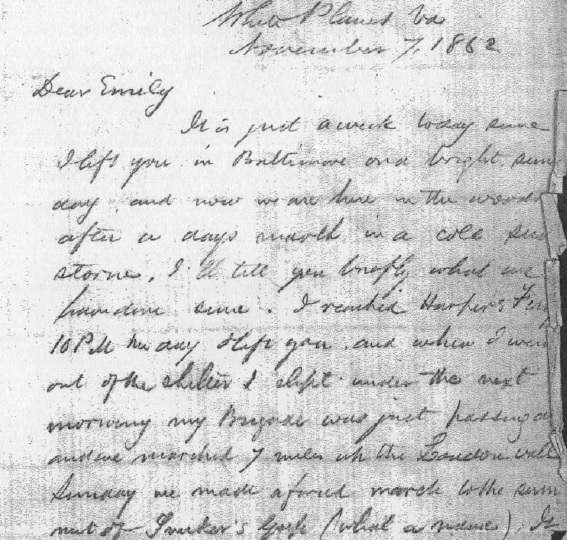 White Plains Va
November 7, 1862
Dear Emily
It is just a week today since
I left you in Baltimore and bright sun
day, and now we are here in the woods
after a days march in a cold sno
storm. I'll tell you briefly what we
have done since. I reached Harper's Fer
10 PM the day I left you. and when I went
out of the shelter I slept under the next
morning my Brigade was just passing a
and we marched 7 miles up the Loudon vall
Sunday we made a forced march to the sum
mit of Snicker's Gap (what a name). It